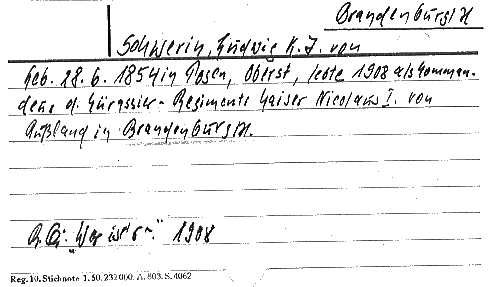 Brandenburg/H
Schwerin, Ludwig K. J. von
Geb. 28. 6. 1854 in Posen, Oberst, lebte 1908 als Komman-
deur d. Kürassier-Regiments Kaiser Nicolaus I. von
Rußland in Brandenburg/H.
"Wer ist's" 1908
Reg. 10. Stichnote 1. 50. 232 000. A. 803. S. 4062